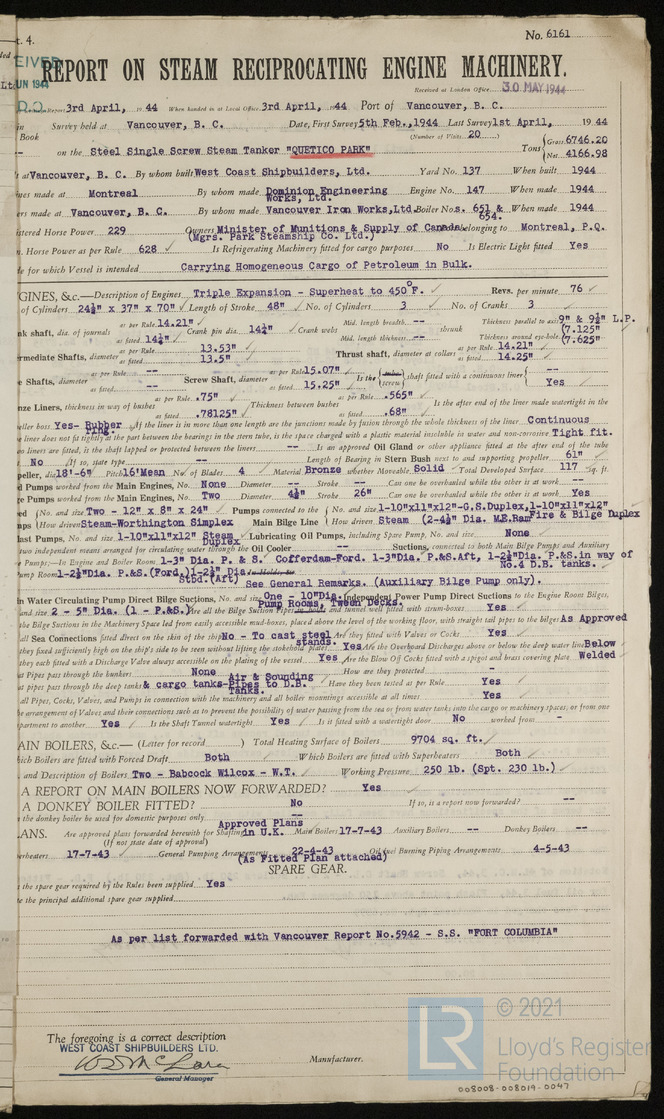 t. 4.
No. 6161
REPORT ON STEAM RECIPROCATING ENGINE MACHINERY.
Received at London Office 30 MAY 1944
3rd April, 19 44 When handed in at Local Office 3rd April, 1944 Port of Vancouver, B. C.
Survey held at Vancouver, B. C. Date, First Survey 5th Feb., 1944 Last Survey 1st April, 19 44
Book (Number of Visits 20)
on the Steel Single Screw Steam Tanker "QUETICO PARK" Tons Gross 6746.20 Net 4166.98
at Vancouver, B. C. By whom built West Coast Shipbuilders, Ltd. Yard No. 137 When built 1944
made at Montreal By whom made Dominion Engineering Works, Ltd. Engine No. 147 When made 1944
made at Vancouver, B. C. By whom made Vancouver Iron Works, Ltd. Boiler Nos. 651 & 654. When made 1944
Horse Power 229 Owners Minister of Munitions & Supply of Canada belonging to Montreal, P.Q.
(Mgrs. Park Steamship Co. Ltd.)
Horse Power as per Rule 628 Is Refrigerating Machinery fitted for cargo purposes No Is Electric Light fitted Yes
for which Vessel is intended Carrying Homogeneous Cargo of Petroleum in Bulk.
GINES, &c.—Description of Engines Triple Expansion - Superheat to 450°F. Revs. per minute 76
of Cylinders 24½" x 37" x 70" Length of Stroke 48" No. of Cylinders 3 No. of Cranks 3
shaft, dia. of journals as per Rule 14.21" as fitted 14¼" Crank pin dia. 14¼" Crank webs Mid. length breadth -- Mid. length thickness -- shrunk Thickness parallel to axis 9" & 9½" L.P. Thickness around eye-hole (7.125" (7.625"
ermediate Shafts, diameter as per Rule 13.53" as fitted 13.5" Thrust shaft, diameter at collars as per Rule 14.21" as fitted 14.25"
Shafts, diameter as per Rule -- as fitted -- Screw Shaft, diameter as per Rule 15.07" as fitted 15.25" Is the screw shaft fitted with a continuous liner -- Yes
Liners, thickness in way of bushes as per Rule .75" as fitted .78125" Thickness between bushes as per Rule .565" as fitted .68" Is the after end of the liner made watertight in the
boss Yes- Rubber Ring. If the liner is in more than one length are the junctions made by fusion through the whole thickness of the liner Continuous
liner does not fit tightly at the part between the bearings in the stern tube, is the space charged with a plastic material insoluble in water and non-corrosive Tight fit.
liners are fitted, is the shaft lapped or protected between the liners -- Is an approved Oil Gland or other appliance fitted at the after end of the tube
No If so, state type -- Length of Bearing in Stern Bush next to and supporting propeller 61"
peller, dia 18'-6" Pitch 16'Mean No. of Blades 4 Material Bronze whether Moveable Solid Total Developed Surface 117 sq. ft.
Pumps worked from the Main Engines, No. None Diameter -- Stroke -- Can one be overhauled while the other is at work --
Pumps worked from the Main Engines, No. Two Diameter 4½" Stroke 26" Can one be overhauled while the other is at work Yes
No. and size Two - 12" x 8" x 24" Pumps connected to the Main Bilge Line No. and size 1-10"x11"x12"-G.S.Duplex,1-10"x11"x12"
How driven Steam-Worthington Simplex How driven Steam (2-4½" Dia. M.E.Ram Fire & Bilge Duplex
Pumps, No. and size 1-10"x11"x12" Steam Duplex Lubricating Oil Pumps, including Spare Pump, No. and size None
two independent means arranged for circulating water through the Oil Cooler -- Suctions, connected to both Main Bilge Pumps and Auxiliary
Pumps:—In Engine and Boiler Room 1-3" Dia. P. & S. Cofferdam-Ford. 1-3"Dia. P.&S.Aft, 1-2½"Dia. P.&S.in way of No.4 D.B. tanks.
ump Room 1-2½"Dia. P.&S.(Ford.)1-2½" Dia. Stbd.(Aft) See General Remarks. (Auxiliary Bilge Pump only).
Water Circulating Pump Direct Bilge Suctions, No. and size One - 10"Dia. Independent Power Pump Direct Suctions to the Engine Room Bilges,
and size 2 - 5" Dia. (1 - P.&S.) Are all the Bilge Suction Pipes in holds and tunnel well fitted with strum-boxes Pump Rooms, Tween Decks. Yes
the Bilge Suctions in the Machinery Space led from easily accessible mud-boxes, placed above the level of the working floor, with straight tail pipes to the bilges As Approved
all Sea Connections fitted direct on the skin of the ship No - To cast steel stands. Are they fitted with Valves or Cocks Yes
they fixed sufficiently high on the ship's side to be seen without lifting the stokehold plates Yes Are the Overboard Discharges above or below the deep water line Below
they each fitted with a Discharge Valve always accessible on the plating of the vessel Yes Are the Blow Off Cocks fitted with a spigot and brass covering plate Welded
Pipes pass through the bunkers None How are they protected -
pipes pass through the deep tanks & cargo tanks-Air & Sounding Pipes to D.B. Tanks. Have they been tested as per Rule Yes
all Pipes, Cocks, Valves, and Pumps in connection with the machinery and all boiler mountings accessible at all times Yes
arrangement of Valves and their connections such as to prevent the possibility of water passing from the sea or from water tanks into the cargo or machinery spaces; or from one
partment to another Yes Is the Shaft Tunnel watertight Yes Is it fitted with a watertight door No worked from -
AIN BOILERS, &c.—(Letter for record ) Total Heating Surface of Boilers 9704 sq. ft.
Boilers are fitted with Forced Draft Both Which Boilers are fitted with Superheaters Both
and Description of Boilers Two - Babcock Wilcox - W.T. Working Pressure 250 lb. (Spt. 230 lb.)
A REPORT ON MAIN BOILERS NOW FORWARDED? Yes
A DONKEY BOILER FITTED? No If so, is a report now forwarded? --
the donkey boiler be used for domestic purposes only --
ANS. Are approved plans forwarded herewith for Shafting Approved Plans in U.K. Main Boilers 17-7-43 Auxiliary Boilers -- Donkey Boilers --
(If not state date of approval)
erheaters 17-7-43 General Pumping Arrangements 22-4-43 (As Fitted Plan attached) Oil fuel Burning Piping Arrangements 4-5-43
SPARE GEAR.
the spare gear required by the Rules been supplied Yes
the principal additional spare gear supplied
As per list forwarded with Vancouver Report No.5942 - S.S. "FORT COLUMBIA"
The foregoing is a correct description
WEST COAST SHIPBUILDERS LTD.
Manufacturer.
General Manager
LR © 2021
Lloyd's Register
Foundation
008008-008019-0047